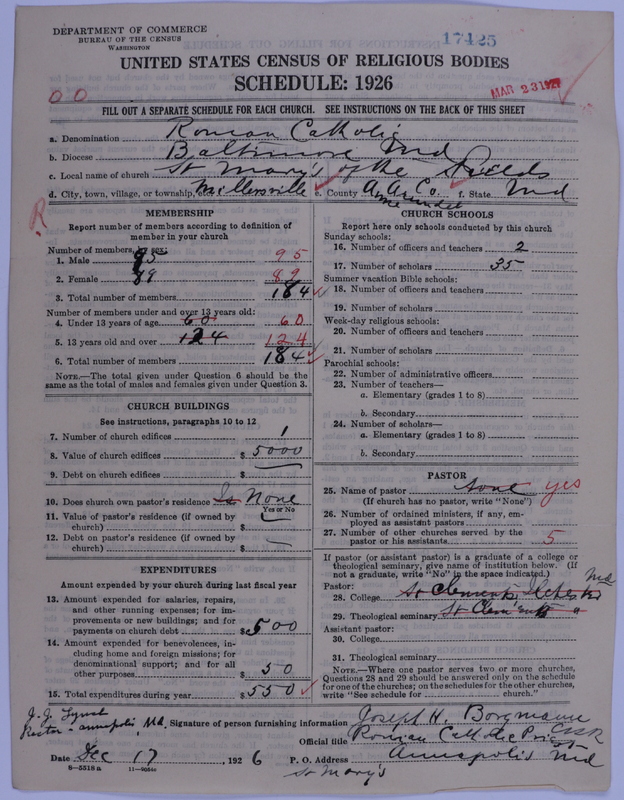 DEPARTMENT OF COMMERCE
BUREAU OF THE CENSUS
WASHINGTON
17425
UNITED STATES CENSUS OF RELIGIOUS BODIES
SCHEDULE: 1926
MAR 23 1927
0 0
FILL OUT A SEPARATE SCHEDULE FOR EACH CHURCH. SEE INSTRUCTIONS ON THE BACK OF THIS SHEET
a. Denomination Roman Catholic
b. Diocese Baltimore Md
c. Local name of church St Mary's of the Fields
d. City, town, village, or township, etc. Millersville e. County A. A. Co. f. State Md
Anne Arundel
R
MEMBERSHIP
Report number of members according to definition of
member in your church
Number of members by sex:
1. Male 95 95
2. Female 89 89
3. Total number of members 184
Number of members under and over 13 years old:
4. Under 13 years of age 60 60
5. 13 years old and over 124 124
6. Total number of members 184
NOTE.—The total given under Question 6 should be
the same as the total of males and females given under Question 3.
CHURCH BUILDINGS
See instructions, paragraphs 10 to 12
7. Number of church edifices 1
8. Value of church edifices $5000
9. Debt on church edifices $
10. Does church own pastor's residence Is None
Yes or No
11. Value of pastor's residence (if owned by
church) $
12. Debt on pastor's residence (if owned by
church) $
EXPENDITURES
Amount expended by your church during last fiscal year
13. Amount expended for salaries, repairs,
and other running expenses; for im-
provements or new buildings; and for
payments on church debt $500
14. Amount expended for benevolences, in-
cluding home and foreign missions; for
denominational support; and for all
other purposes 50
15. Total expenditures during year $550
CHURCH SCHOOLS
Report here only schools conducted by this church
Sunday schools:
16. Number of officers and teachers 2
17. Number of scholars 35
Summer vacation Bible schools:
18. Number of officers and teachers
19. Number of scholars
Week-day religious schools:
20. Number of officers and teachers
21. Number of scholars
Parochial schools:
22. Number of administrative officers
23. Number of teachers—
a. Elementary (grades 1 to 8)
b. Secondary
24. Number of scholars—
a. Elementary (grades 1 to 8)
b. Secondary
PASTOR
25. Name of pastor None yes
(If church has no pastor, write "None")
26. Number of ordained ministers, if any, em-
ployed as assistant pastors
27. Number of other churches served by the
pastor or his assistants 5
If pastor (or assistant pastor) is a graduate of a college or
theological seminary, give name of institution below. (If
not a graduate, write "No" in the space indicated.)
Md
Pastor:
28. College St Clements Ilchester
29. Theological seminary St Clements "
Assistant pastor:
30. College
31. Theological seminary
NOTE.—Where one pastor serves two or more churches,
Questions 28 and 29 should be answered only on the schedule
for one of the churches; on the schedules for the other churches,
write "See schedule for church."
J. J. Lynch
Rector - Annapolis, Md.
Signature of person furnishing information Joseph H. Borgmann
CSSR
Official title Roman Catholic Priest
Date Dec 17, 1926 P. O. Address Annapolis Md
8—5518 a
St Mary's